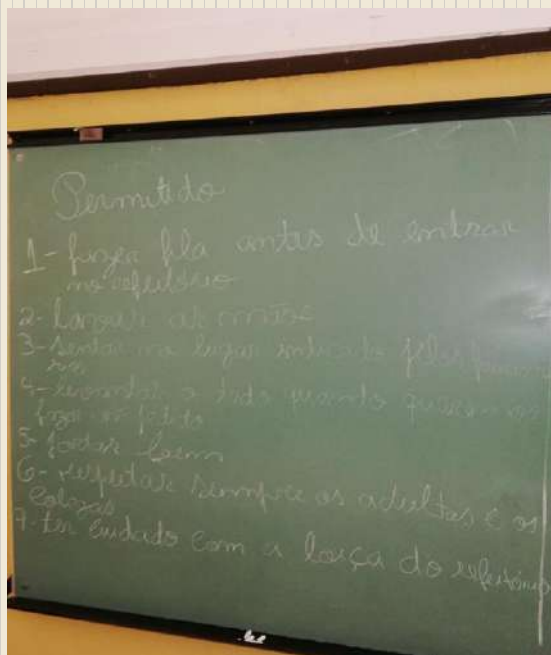 Permitido
1- fazer fila antes de entrar
no refeitório
2- Lavar as mãos
3- sentar no lugar indicado pelas
4- levantar o dedo quando
fazer pedido
5-
6- respeitar sempre os adultos e os
colegas
7- ter cuidado com a loiça do refeitório